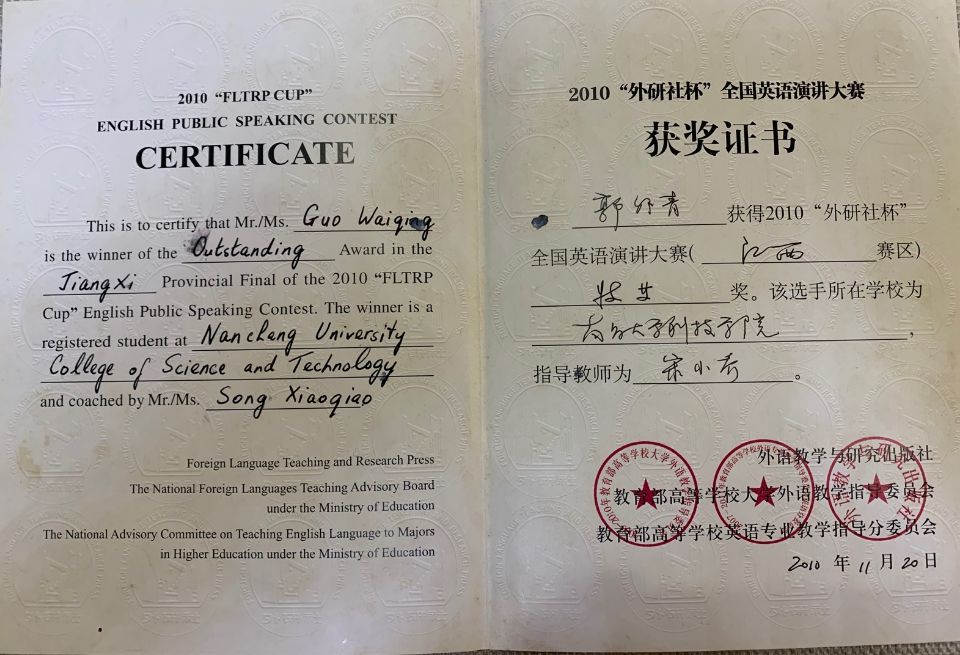 2010 “FLTRP CUP”
ENGLISH PUBLIC SPEAKING CONTEST
CERTIFICATE
This is to certify that Mr./Ms. Guo Waiqing
is the winner of the Outstanding Award in the
JiangXi Provincial Final of the 2010 “FLTRP
Cup” English Public Speaking Contest. The winner is a
registered student at Nanchang University
College of Science and Technology
and coached by Mr./Ms. Song Xiaoqiao
Foreign Language Teaching and Research Press
The National Foreign Languages Teaching Advisory Board
under the Ministry of Education
The National Advisory Committee on Teaching English Language to Majors
in Higher Education under the Ministry of Education
2010 “外研社杯” 全国英语演讲大赛
获奖证书
郭外青 获得2010 “外研社杯”
全国英语演讲大赛( 江西 赛区)
奖。该选手所在学校为
南昌大学科技学院,
指导教师为 宋小乔。
外语教学与研究出版社
教育部高等学校大学外语教学指导委员会
教育部高等学校英语专业教学指导分委员会
2010 年 11 月 20 日